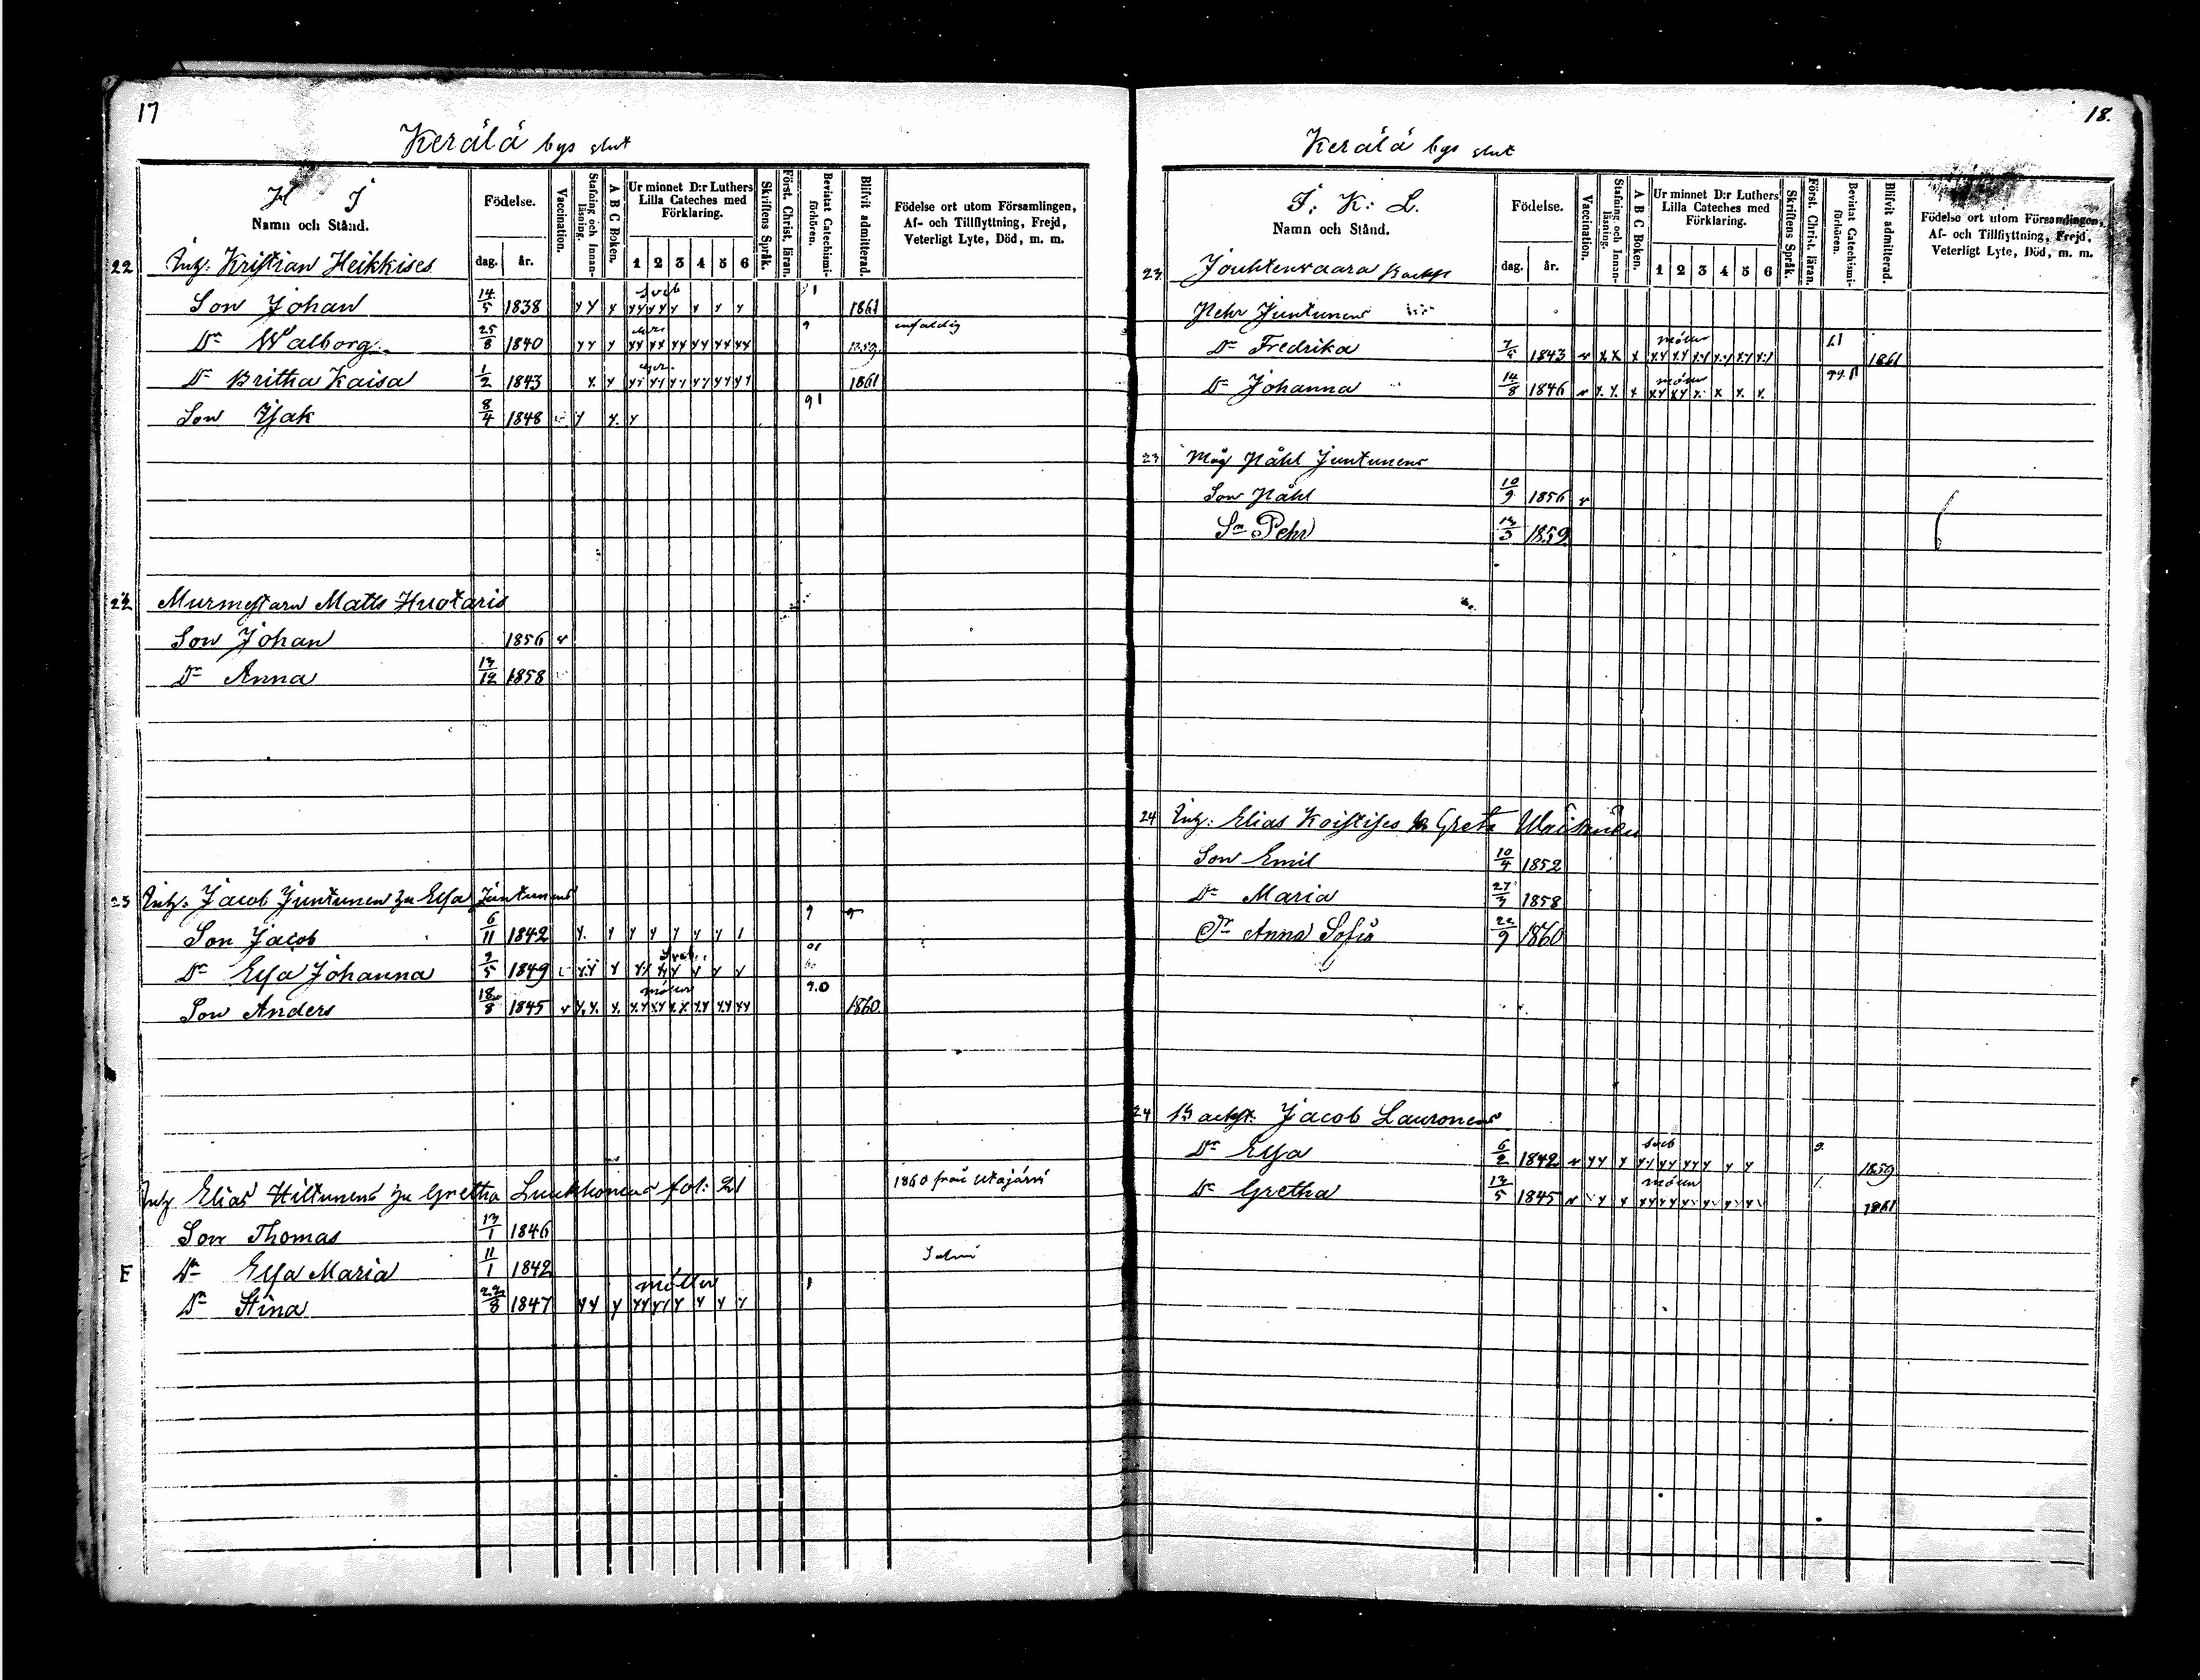 17
Kerälä bys slut
H J
Namn och Stånd.
Födelse.
dag. år.
Vaccination.
Stafning och Innan-
läsning.
A B C Boken.
Ur minnet D:r Luthers
Lilla Cateches med
Förklaring.
1 2 3 4 5 6
Skriftens Språk.
Först. Christ. läran.
Bevistat Catechismi-
förhören.
Blifvit admitterad.
Födelse ort utom Församlingen,
Af- och Tillflyttning, Frejd,
Veterligt Lyte, Död, m. m.
22 Inhs. Kristian Heikkises
Son Johan 14/5 1838 1861
Dr Walborg 25/8 1840 1859 enfaldig
Dr Britha Kaisa 1/2 1843 1861
Son Isak 8/4 1848 91
22 Murmestarn Matts Huotaris
Son Johan 1856 v
Dr Anna 13/12 1858
23 Inhs. Jacob Juntunen Elsa Juntunens
Son Jacob 6/11 1842
Dr Elsa Johanna 2/5 1849
Son Anders 18/8 1845 v 1860
Inhs Elias Hiltunens Gretha Luukkonens fol: 21 1860 från Utajärvi
Son Thomas 13/1 1846
F Dr Elsa Maria 11/1 1842
Dr Stina 22/8 1847
18.
Kerälä bys slut
J. K: L.
Namn och Stånd.
Födelse.
dag. år.
Vaccination.
Stafning och Innan-
läsning.
A B C Boken.
Ur minnet D:r Luthers
Lilla Cateches med
Förklaring.
1 2 3 4 5 6
Skriftens Språk.
Först. Christ. läran.
Bevistat Catechismi-
förhören.
Blifvit admitterad.
Födelse ort utom Församlingen,
Af- och Tillflyttning, Frejd,
Veterligt Lyte, Död, m. m.
23 Jouhtenvaara Backst
Pehr Juntunens
Dr Fredrika 7/5 1843 v 1861
Dr Johanna 14/8 1846 v
23 Måg Påhl Juntunens
Son Påhl 10/9 1856 v
Sn Pehr 13/3 1859
24 Inhs: Elias Koistises Greta
Son Emil 10/4 1852
Dr Maria 27/3 1858
Dr Anna Sofia 22/9 1860
24 Backst. Jacob Lauronens
Dr Elsa 6/2 1842 v 1859
Dr Gretha 13/5 1845 v 1861